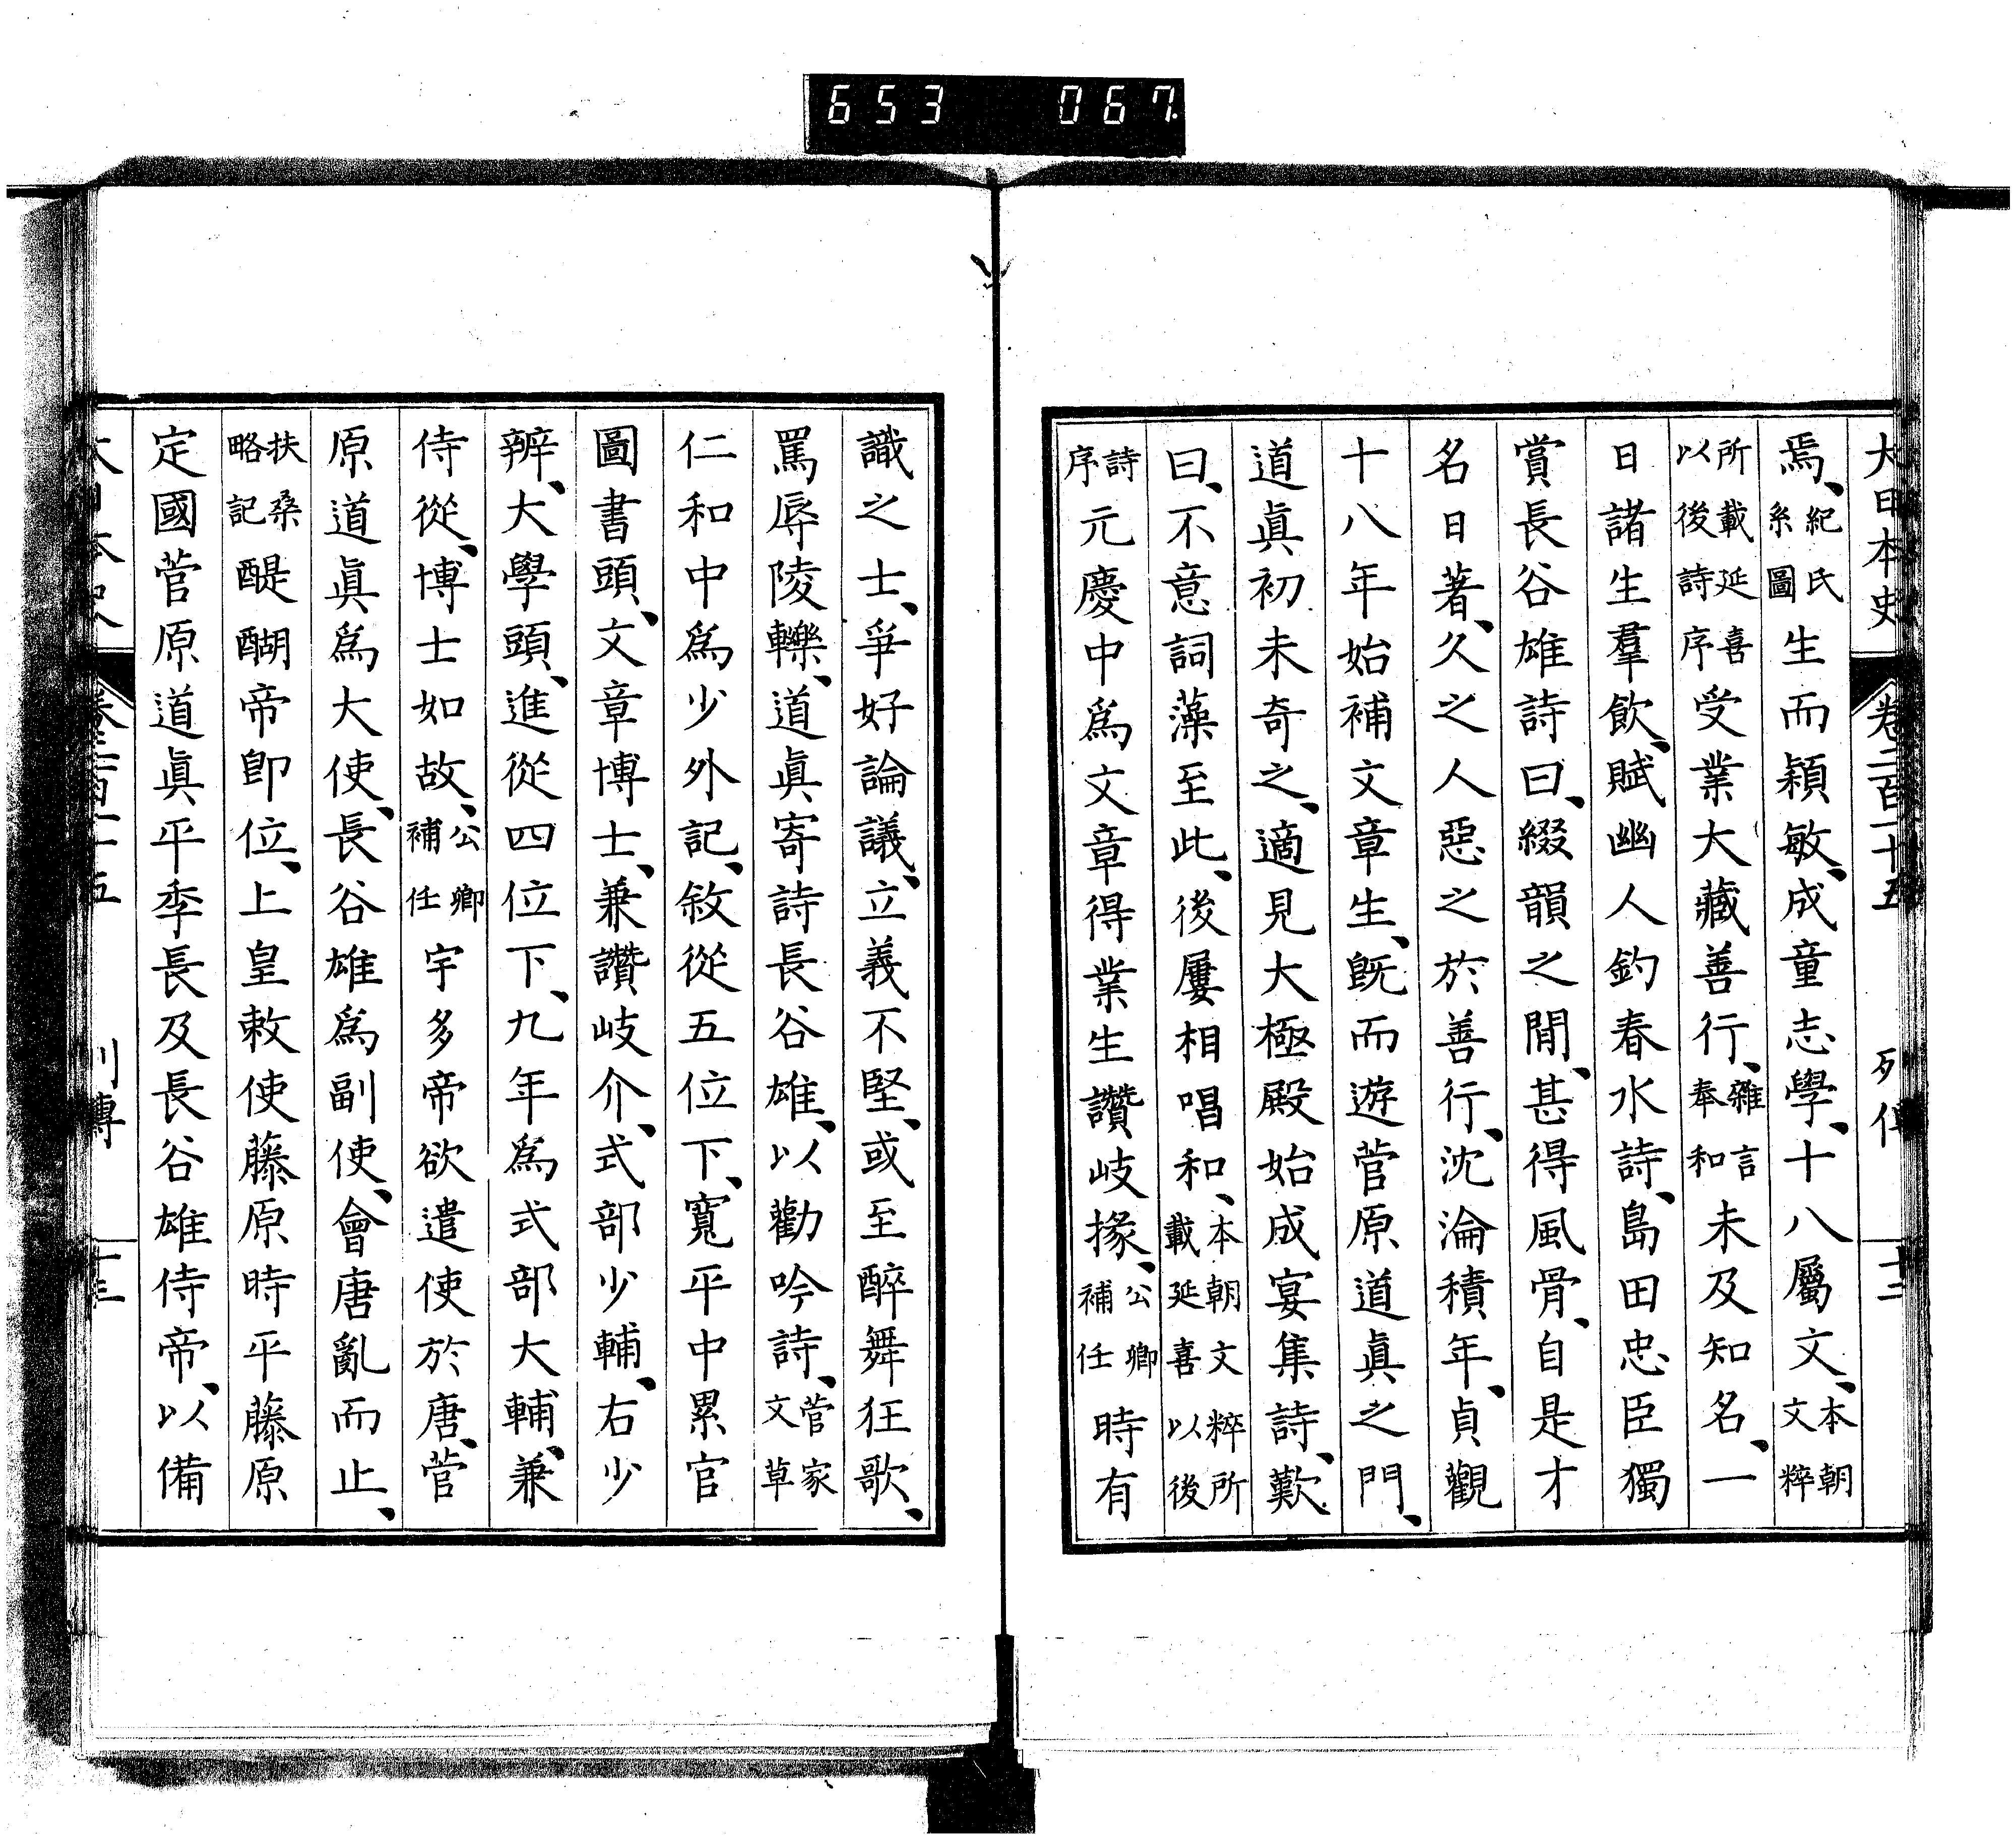 653 067
大日本史 卷二百一十五 列傳 十二
焉、紀氏系圖生而穎敏、成童志學、十八屬文、本朝文粹
所載延喜以後詩序受業大藏善行、雜言奉和未及知名、一
日諸生羣飲、賦幽人釣春水詩、島田忠臣獨
賞長谷雄詩曰、綴韻之閒、甚得風骨、自是才
名日著、久之人惡之於善行、沈淪積年、貞觀
十八年始補文章生、既而遊菅原道眞之門、
道眞初未奇之、適見大極殿始成宴集詩、歎
曰、不意詞藻至此、後屢相唱和、本朝文粹所載延喜以後
詩序元慶中爲文章得業生讚岐掾、公卿補任時有
識之士、爭好論議、立義不堅、或至醉舞狂歌、
罵辱陵轢、道眞寄詩長谷雄、以勸吟詩、菅家文草
仁和中爲少外記、敘從五位下、寬平中累官
圖書頭、文章博士、兼讚岐介、式部少輔、右少
辨、大學頭、進從四位下、九年爲式部大輔、兼
侍從、博士如故、公卿補任宇多帝欲遣使於唐、菅
原道眞爲大使、長谷雄爲副使、會唐亂而止、
扶桑略記醍醐帝卽位、上皇敕使藤原時平藤原
定國菅原道眞平季長及長谷雄侍帝、以備